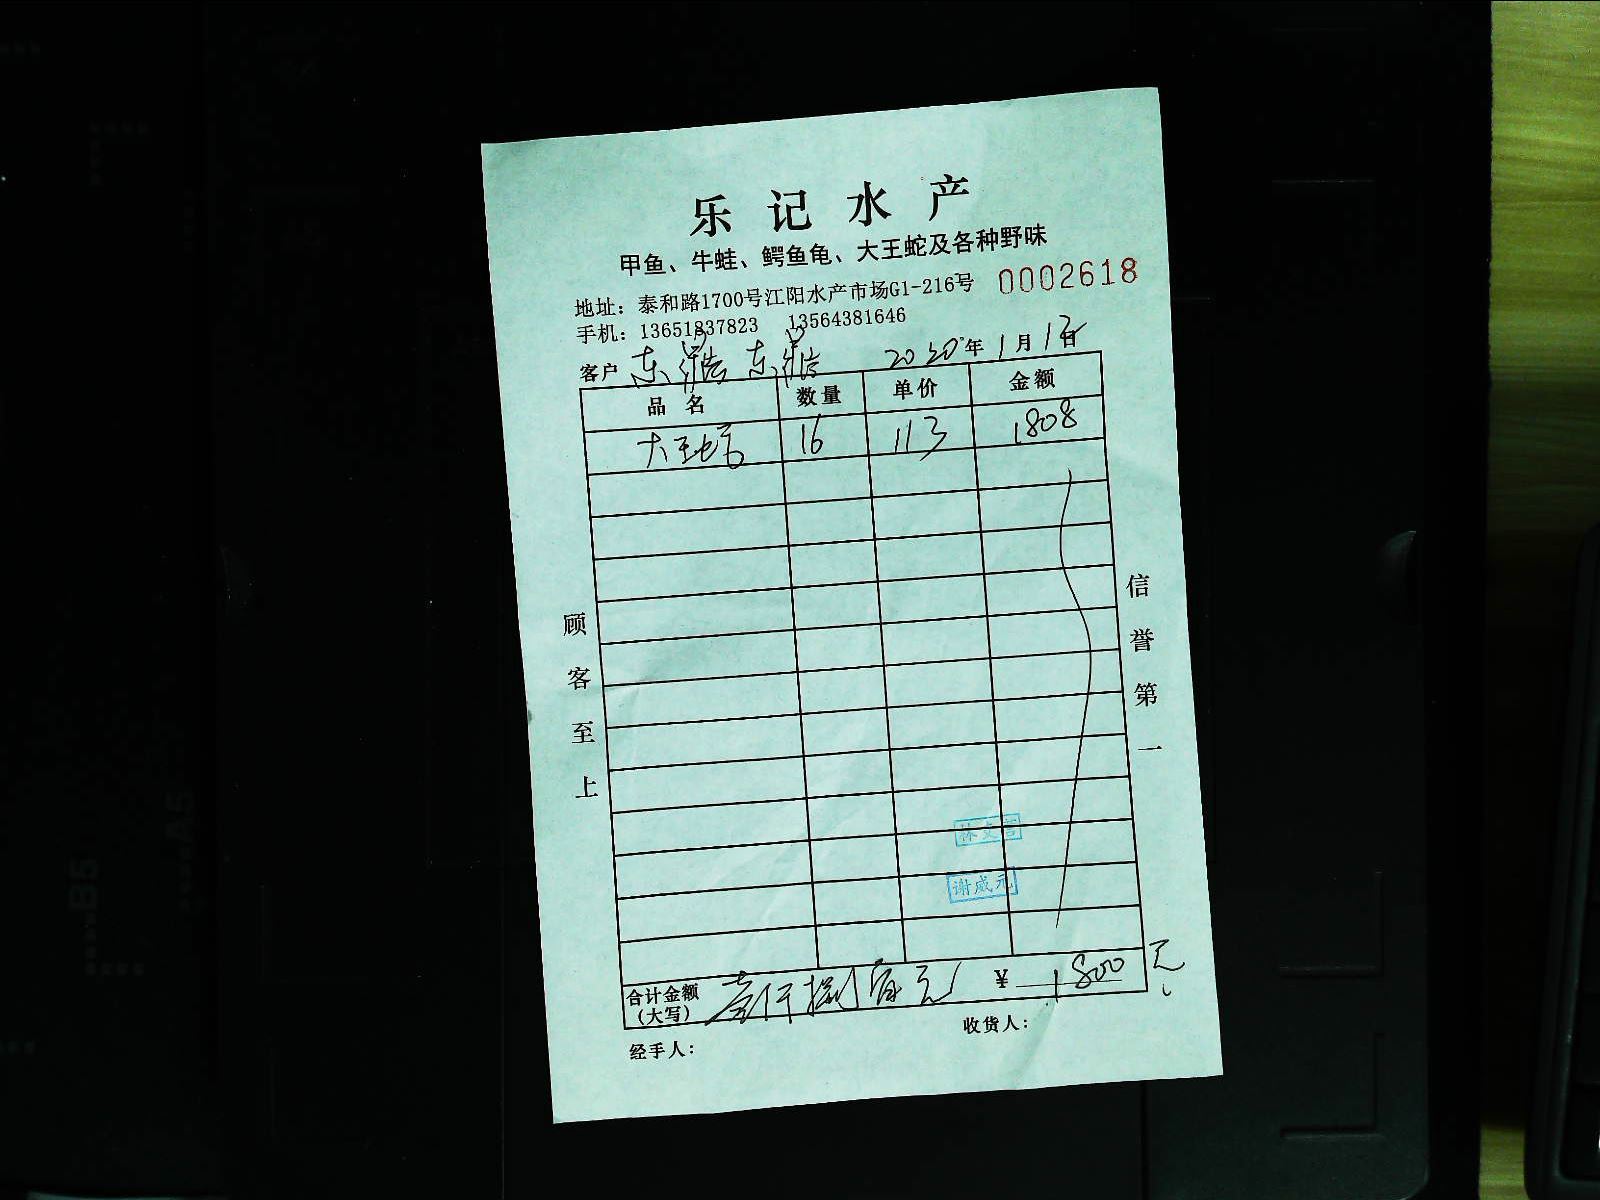 乐记水产
甲鱼、牛蛙、鳄鱼龟、大王蛇及各种野味
地址：泰和路1700号江阳水产市场G1-216号 0002618
手机：13651837823 13564381646
客户 2020年1月1日
品名 数量 单价 金额
大王蛇 16 113 1808
顾客至上
信誉第一
谢威元
合计金额（大写） 壹仟捌佰元 ¥ 1800元
经手人： 收货人：